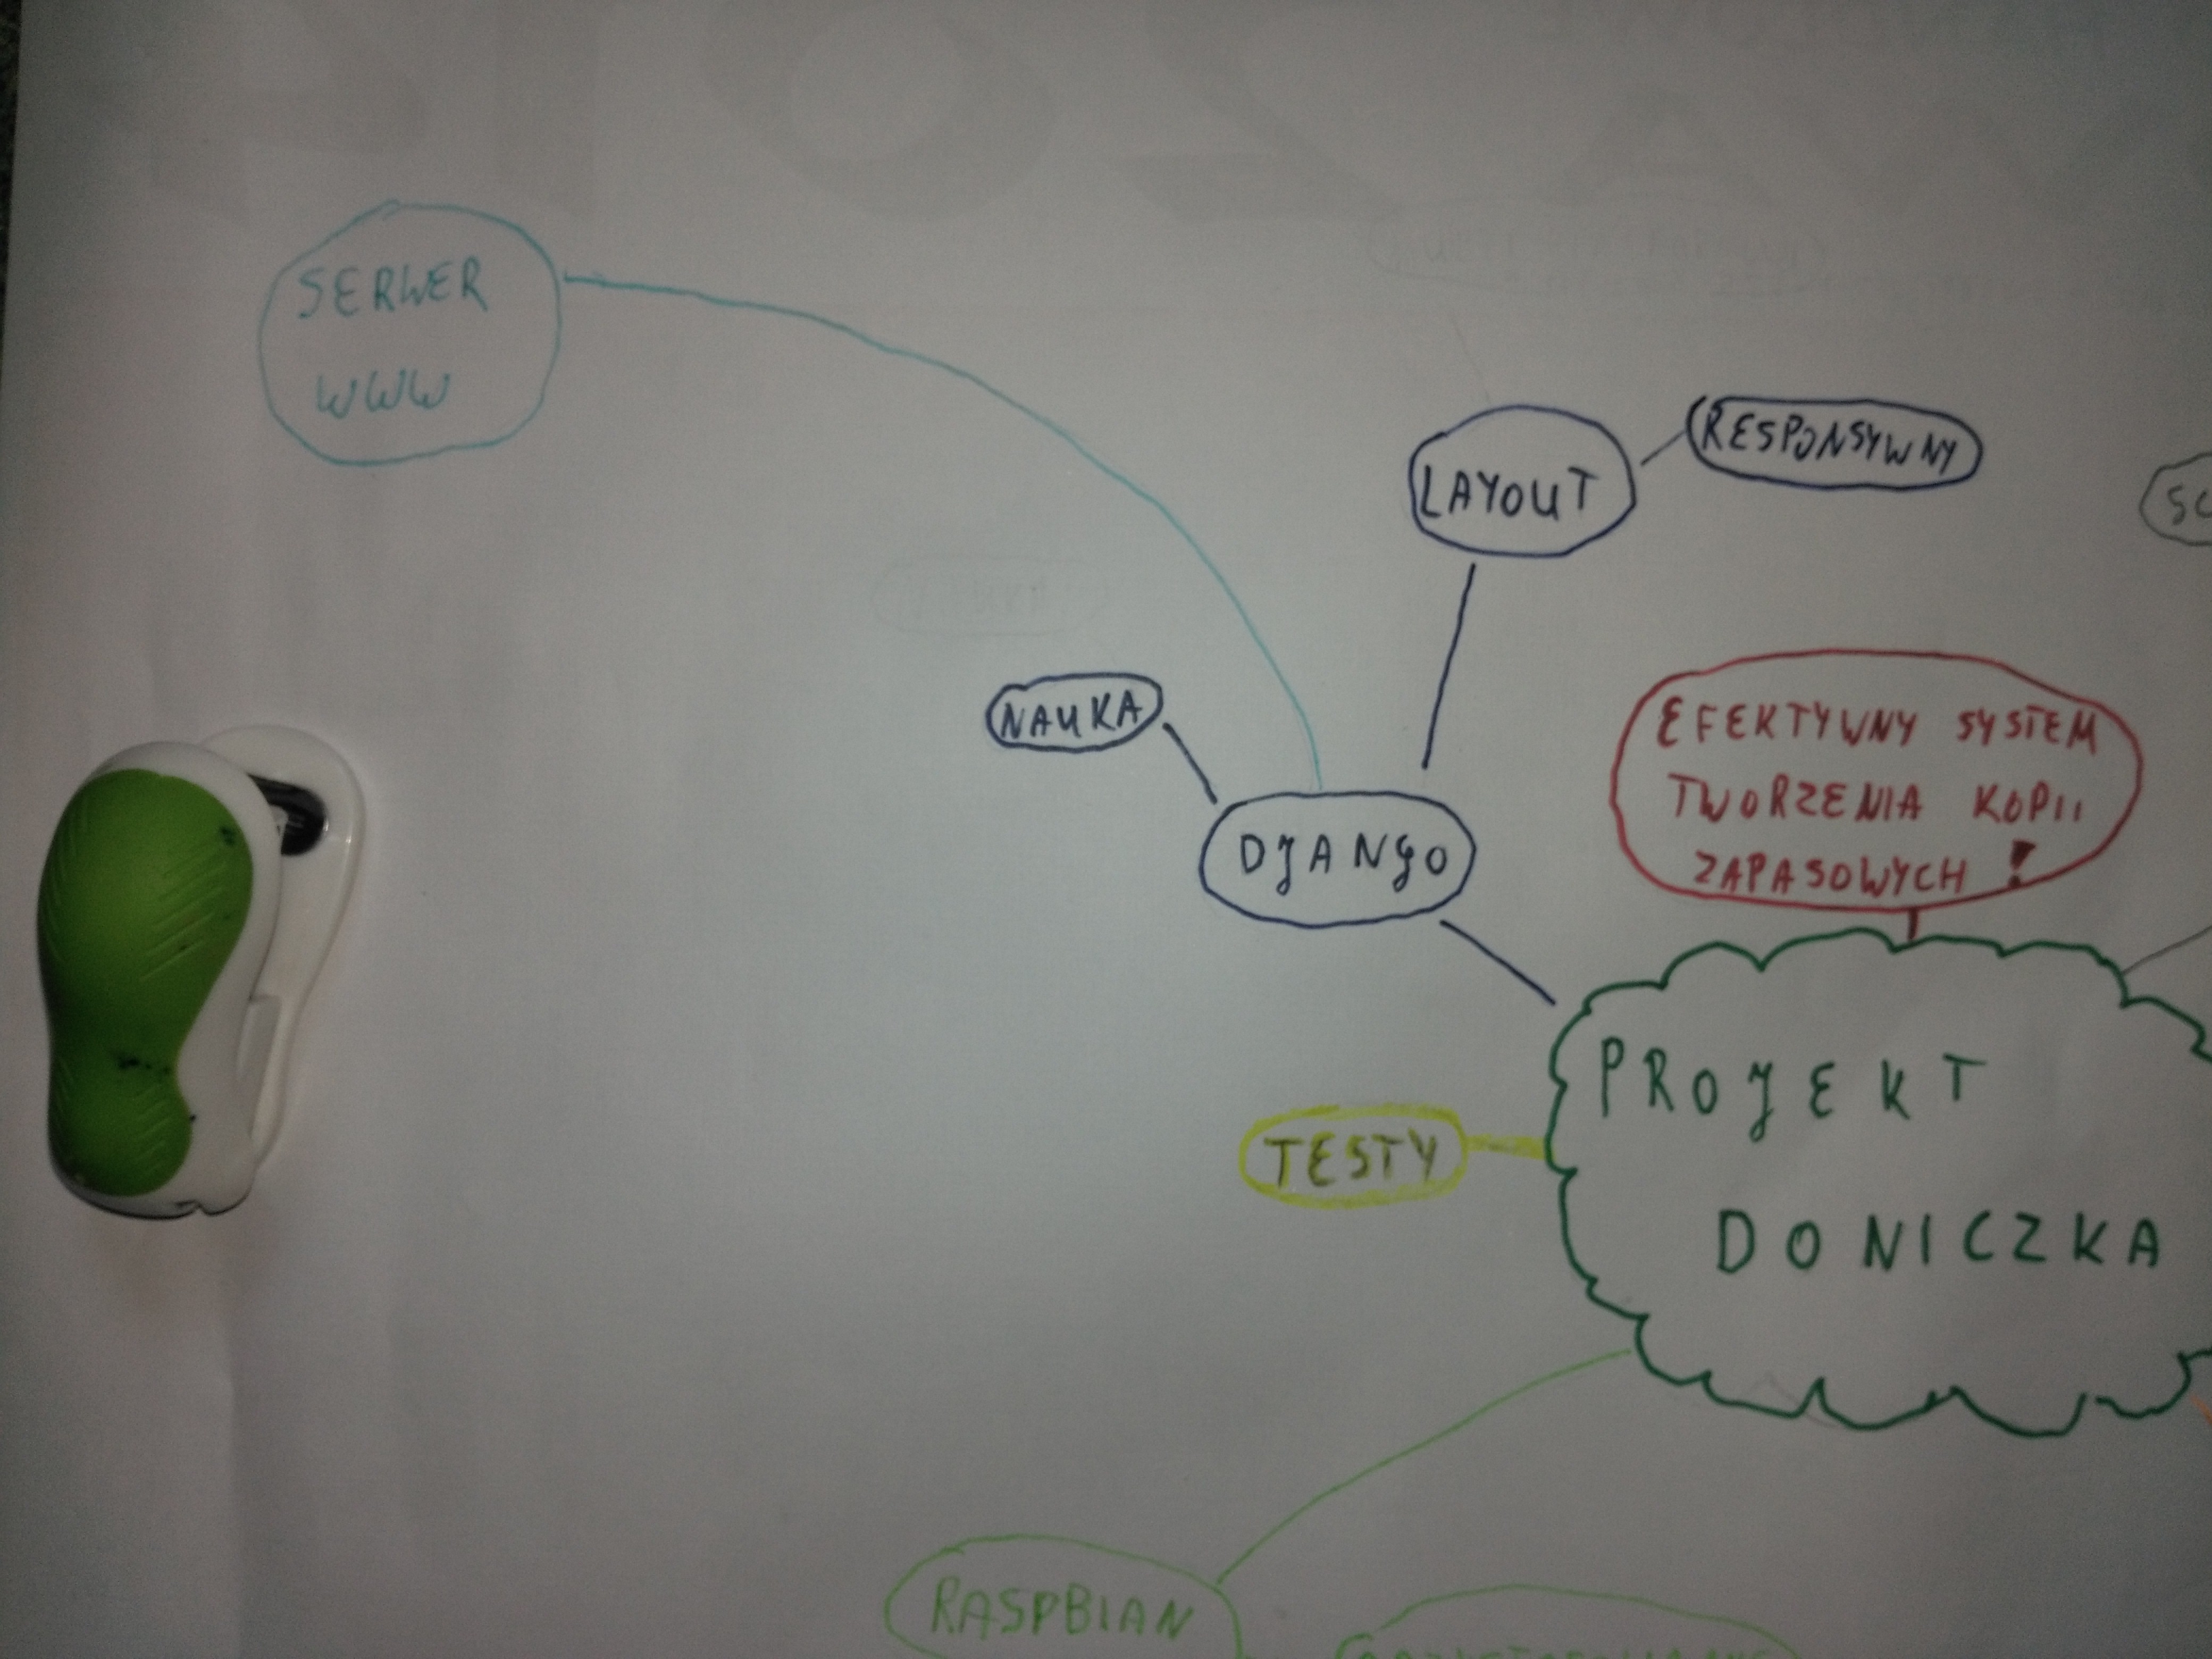 SERWER
WWW
LAYOUT
RESPONSYWNY
NAUKA
DJANGO
EFEKTYWNY SYSTEM
TWORZENIA KOPII
ZAPASOWYCH !
PROJEKT
DONICZKA
TESTY
RASPBIAN